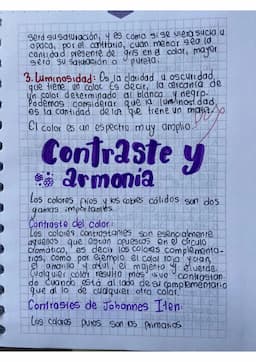 será su saturación, y es como si se viera sucia u
opaca, por el contrario, cuan menor sea la
cantidad presente de gris en el color, mayor
será su saturación o pureza.
3. Luminosidad: Es la claridad u oscuridad
que tiene un color. Es decir, la cercanía de
un color determinado al blanco y negro.
Podemos considerar que la luminosidad
es la cantidad de luz que tiene un matiz.
El color es un espectro muy amplio.
Contraste y
armonía
Los colores fríos y los colores cálidos son dos
gamas importantes.
Contraste del color:
Los colores contrastantes son esencialmente
aquellos que están opuestos en el círculo
cromático, es decir los colores complementa-
rios, como por ejemplo el color rojo y cyan,
el amarillo y azul, el magenta y el verde.
Cualquier color resulta más vivo contrastan-
do cuando está al lado de su complementario
que al lado de cualquier otro color.
Contrastes de Johannes Iten:
Los colores puros son los primarios